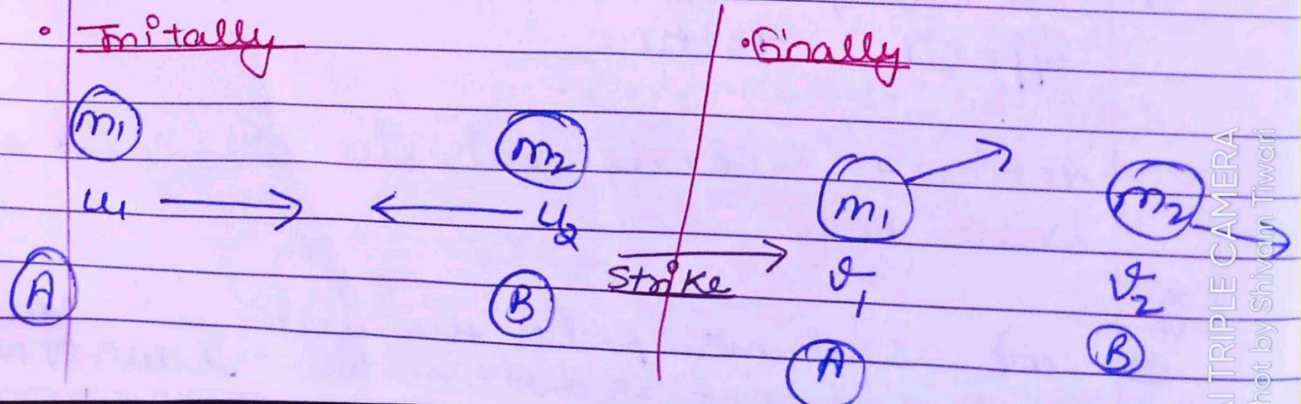 • Initally
m1
m2
u1
u2
A
B
Strike
• Finally
m1
m2
v1
v2
A
B
AI TRIPLE CAMERA
Shot by Shivam Tiwari